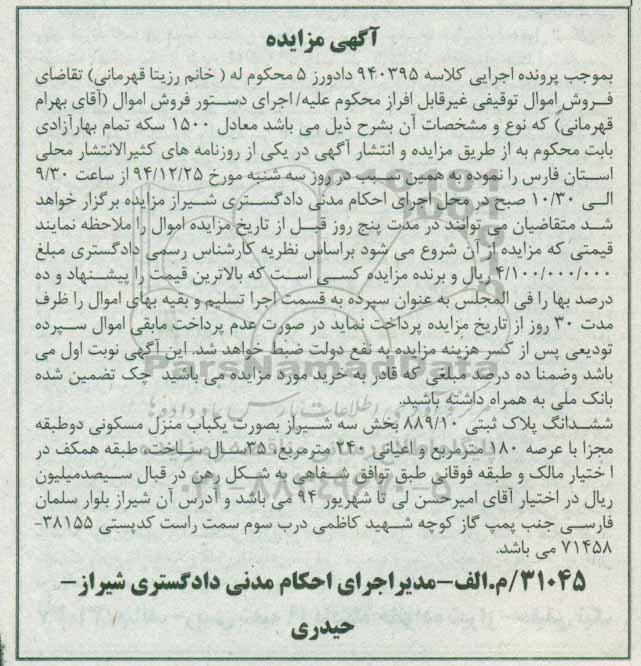 آگهی مزایده
بموجب پرونده اجرایی کلاسه ۹۴۰۳۹۵ دادورز ۵ محکوم له ( خانم رزیتا قهرمانی) تقاضای
فروش اموال توقیفی غیرقابل افراز محکوم علیه/ اجرای دستور فروش اموال (آقای بهرام
قهرمانی) که نوع و مشخصات آن بشرح ذیل می باشد معادل ۱۵۰۰ سکه تمام بهارآزادی
بابت محکوم به از طریق مزایده و انتشار آگهی در یکی از روزنامه های کثیرالانتشار محلی
استان فارس را نموده به همین سبب در روز سه شنبه مورخ ۹۴/۱۲/۲۵ از ساعت ۹/۳۰
الی ۱۰/۳۰ صبح در محل اجرای احکام مدنی دادگستری شیراز مزایده برگزار خواهد
شد متقاضیان می توانند در مدت پنج روز قبل از تاریخ مزایده اموال را ملاحظه نمایند
قیمتی که مزایده از آن شروع می شود براساس نظریه کارشناس رسمی دادگستری مبلغ
۴/۱۰۰/۰۰۰/۰۰۰ ریال و برنده مزایده کسی است که بالاترین قیمت را پیشنهاد و ده
درصد بها را فی المجلس به عنوان سپرده به قسمت اجرا تسلیم و بقیه بهای اموال را ظرف
مدت ۳۰ روز از تاریخ مزایده پرداخت نماید در صورت عدم پرداخت مابقی اموال سپرده
تودیعی پس از کسر هزینه مزایده به نفع دولت ضبط خواهد شد. این آگهی نوبت اول می
باشد وضمنا ده درصد مبلغی که قادر به خرید مورد مزایده می باشید چک تضمین شده
بانک ملی به همراه داشته باشید.
ششدانگ پلاک ثبتی ۸۸۹/۱۰ بخش سه شیراز بصورت یکباب منزل مسکونی دوطبقه
مجزا با عرصه ۱۸۰ مترمربع و اعیانی ۲۴۰ مترمربع ۳۵ سال ساخت طبقه همکف در
ا ختیار مالک و طبقه فوقانی طبق توافق شفاهی به شکل رهن در قبال سیصدمیلیون
ریال در اختیار آقای امیرحسن لی تا شهریور ۹۴ می باشد و آدرس آن شیراز بلوار سلمان
فارسی جنب پمپ گاز کوچه شهید کاظمی درب سوم سمت راست کدپستی ۳۸۱۵۵-
۷۱۴۵۸ می باشد.
۳۱۰۴۵/م.الف-مدیراجرای احکام مدنی دادگستری شیراز-
حیدری
ParsNamadData